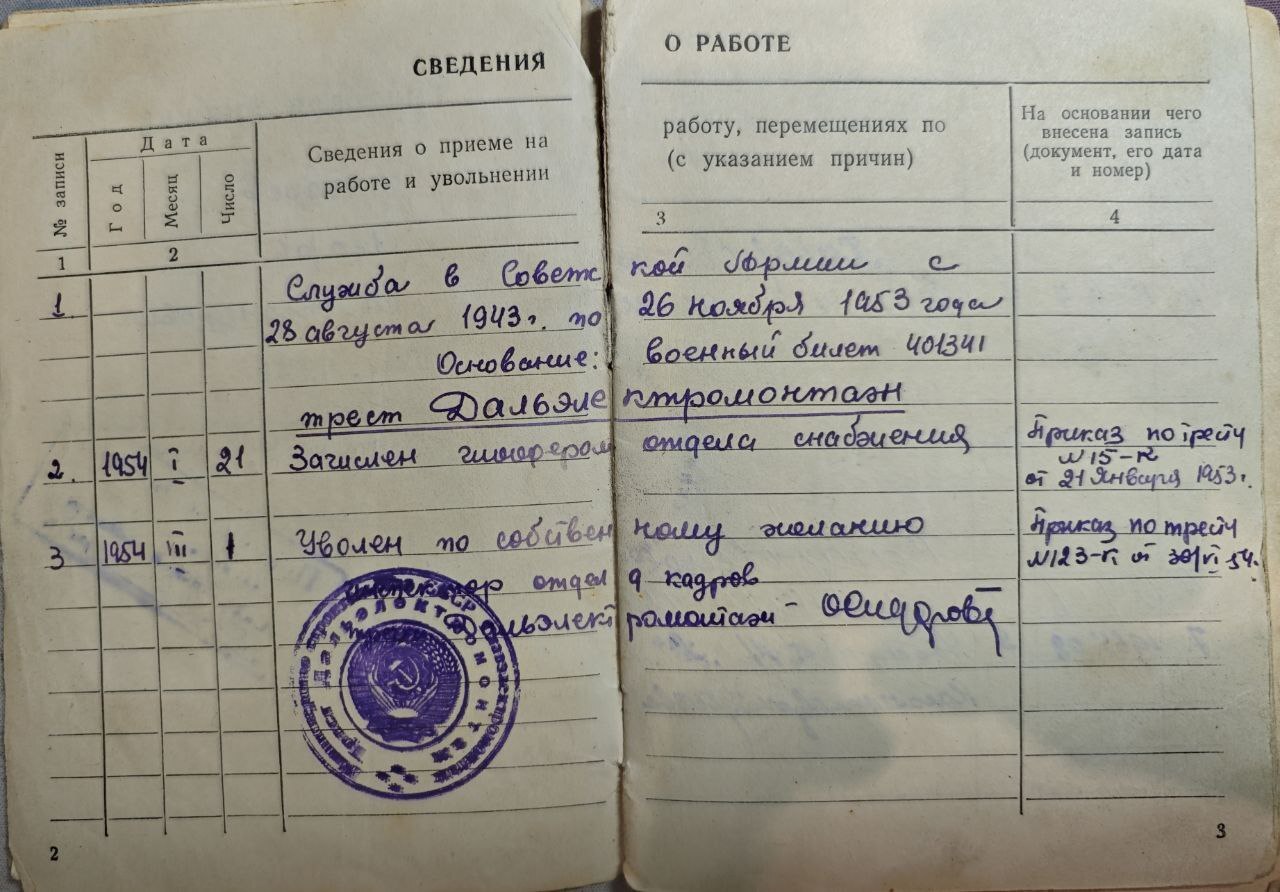 СВЕДЕНИЯ О РАБОТЕ
№ записи
Дата
Год
Месяц
Число
Сведения о приеме на работу, перемещениях по
работе и увольнении (с указанием причин)
На основании чего
внесена запись
(документ, его дата
и номер)
1 2 3 4
1. Служба в Советской Армии с
28 августа 1943 г. по 26 ноября 1953 года
Основание: военный билет 401341
трест Дальэлектромонтаж
2. 1954 I 21 Зачислен шофером отдела снабжения
Приказ по тресту
N 15-к
от 21 Января 1953 г.
3 1954 III 1 Уволен по собственному желанию
Приказ по тресту
N 123-к от 30/VI 54.
Инспектор отдела кадров
Дальэлектромонтаж
Дальэлектромонтаж
2
3